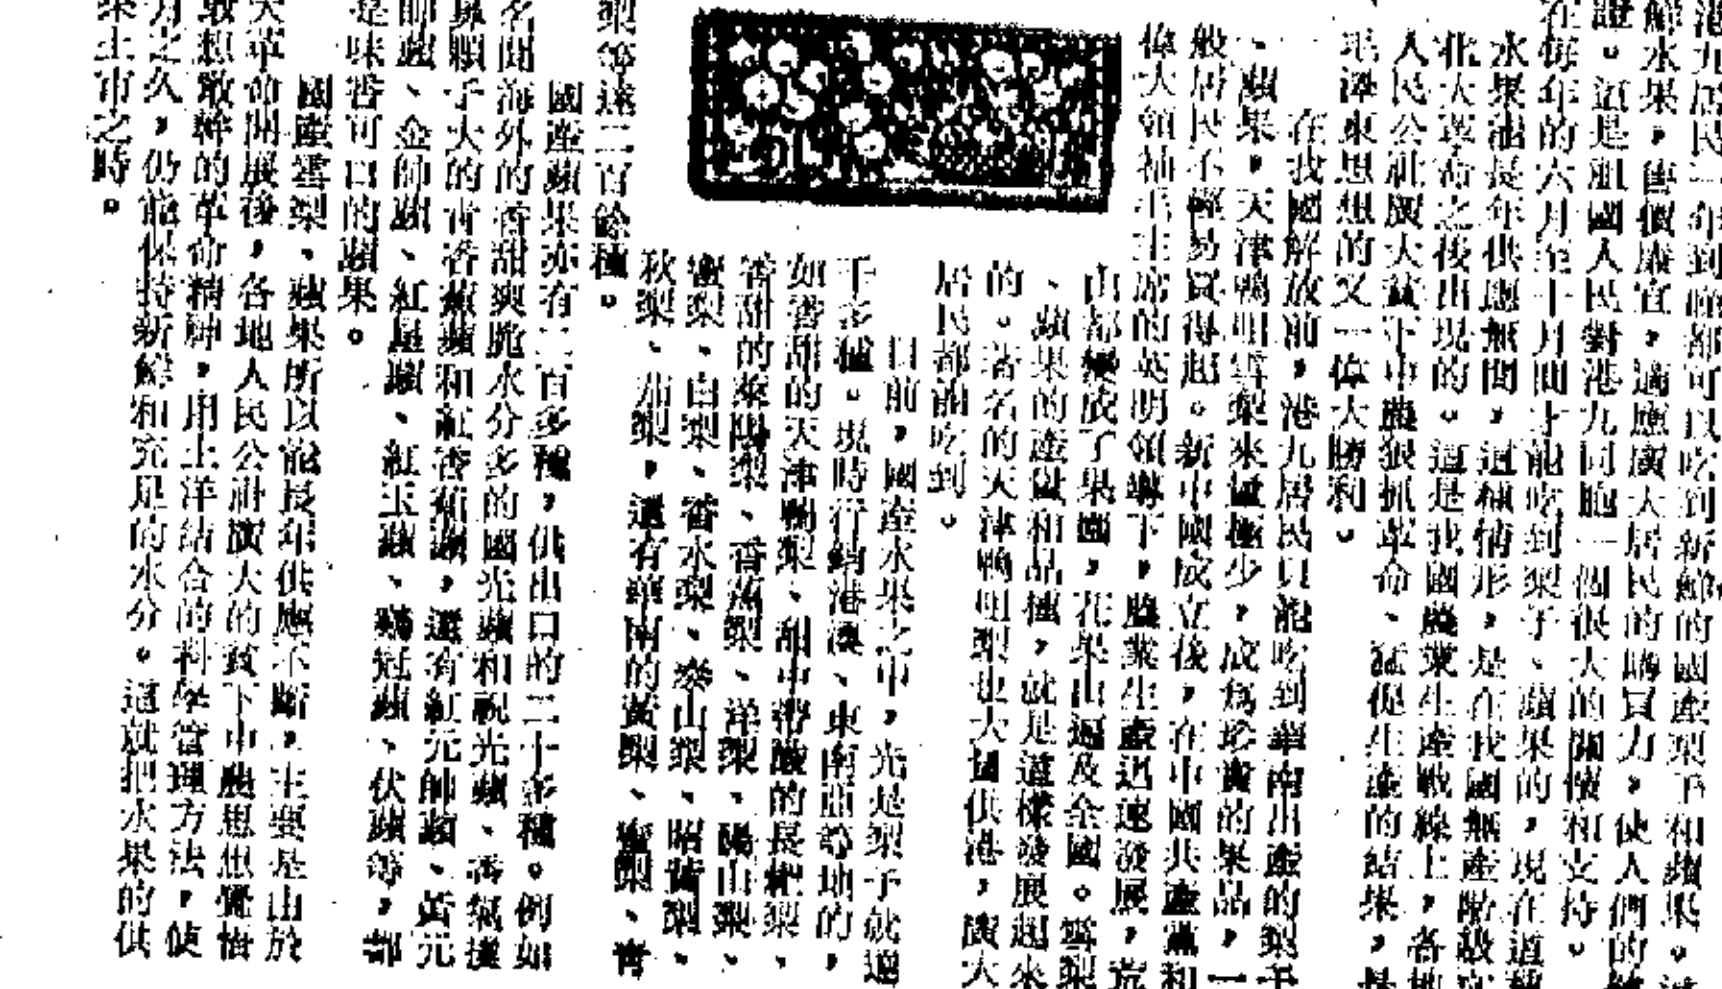 港九居民一年到晚都可以吃到新鮮的國產梨子和蘋果。
鮮水果，售價廉宜，適應廣大居民的購買力，使人們的
證。這是祖國人民對港九同胞一個很大的關懷和支持。
在每年的六月至十月間才能吃到梨子、蘋果的，現在這種
水果源長年供應無間，這種情形，是在我國無產階級文
化大革命之後出現的。這是我國農業生產戰線上，各地
人民公社廣大貧下中農狠抓革命、猛促生產的結果，是
毛澤東思想的又一偉大勝利。
在我國解放前，港九居民只能吃到華南出產的梨子
、蘋果，天津鴨咀雪梨來量極少，成為珍貴的果品，一
般居民不輕易買得起。新中國成立後，在中國共產黨和
偉大領袖毛主席的英明領導下，農業生產迅速發展，荒
山都變成了果園，花果山遍及全國。雪梨
、蘋果的產量和品種，就是這樣發展起來
的。著名的天津鴨咀梨也大量供港，廣大
居民都能吃到。
目前，國產水果之中，光是梨子就過
千多種。現時行銷港澳、東南亞等地的，
如香甜的天津鴨梨、甜中帶酸的長把梨、
香甜的萊陽梨、香蕉梨、洋梨、碭山梨、
蜜梨、白梨、香水梨、泰山梨、昭黃梨、
秋梨、茄梨，還有華南的黃梨、蜜梨、青
梨等達二百餘種。
國產蘋果亦有二百多種，供出口的二十多種。例如
名聞海外的香甜爽脆水分多的國光蘋和祝光蘋、香氣撲
鼻顆子大的青香蕉蘋和紅香蕉蘋，還有紅元帥蘋、黃元
帥蘋、金帥蘋、紅星蘋、紅玉蘋、鷄冠蘋、伏蘋等，都
是味香可口的蘋果。
國產雪梨、蘋果所以能長年供應不斷，主要是由於
大革命開展後，各地人民公社廣大的貧下中農思想覺悟
敢想敢幹的革命精神，用土洋結合的科學管理方法，使
月之久，仍能保持新鮮和充足的水分。這就把水果的供
果上市之時。